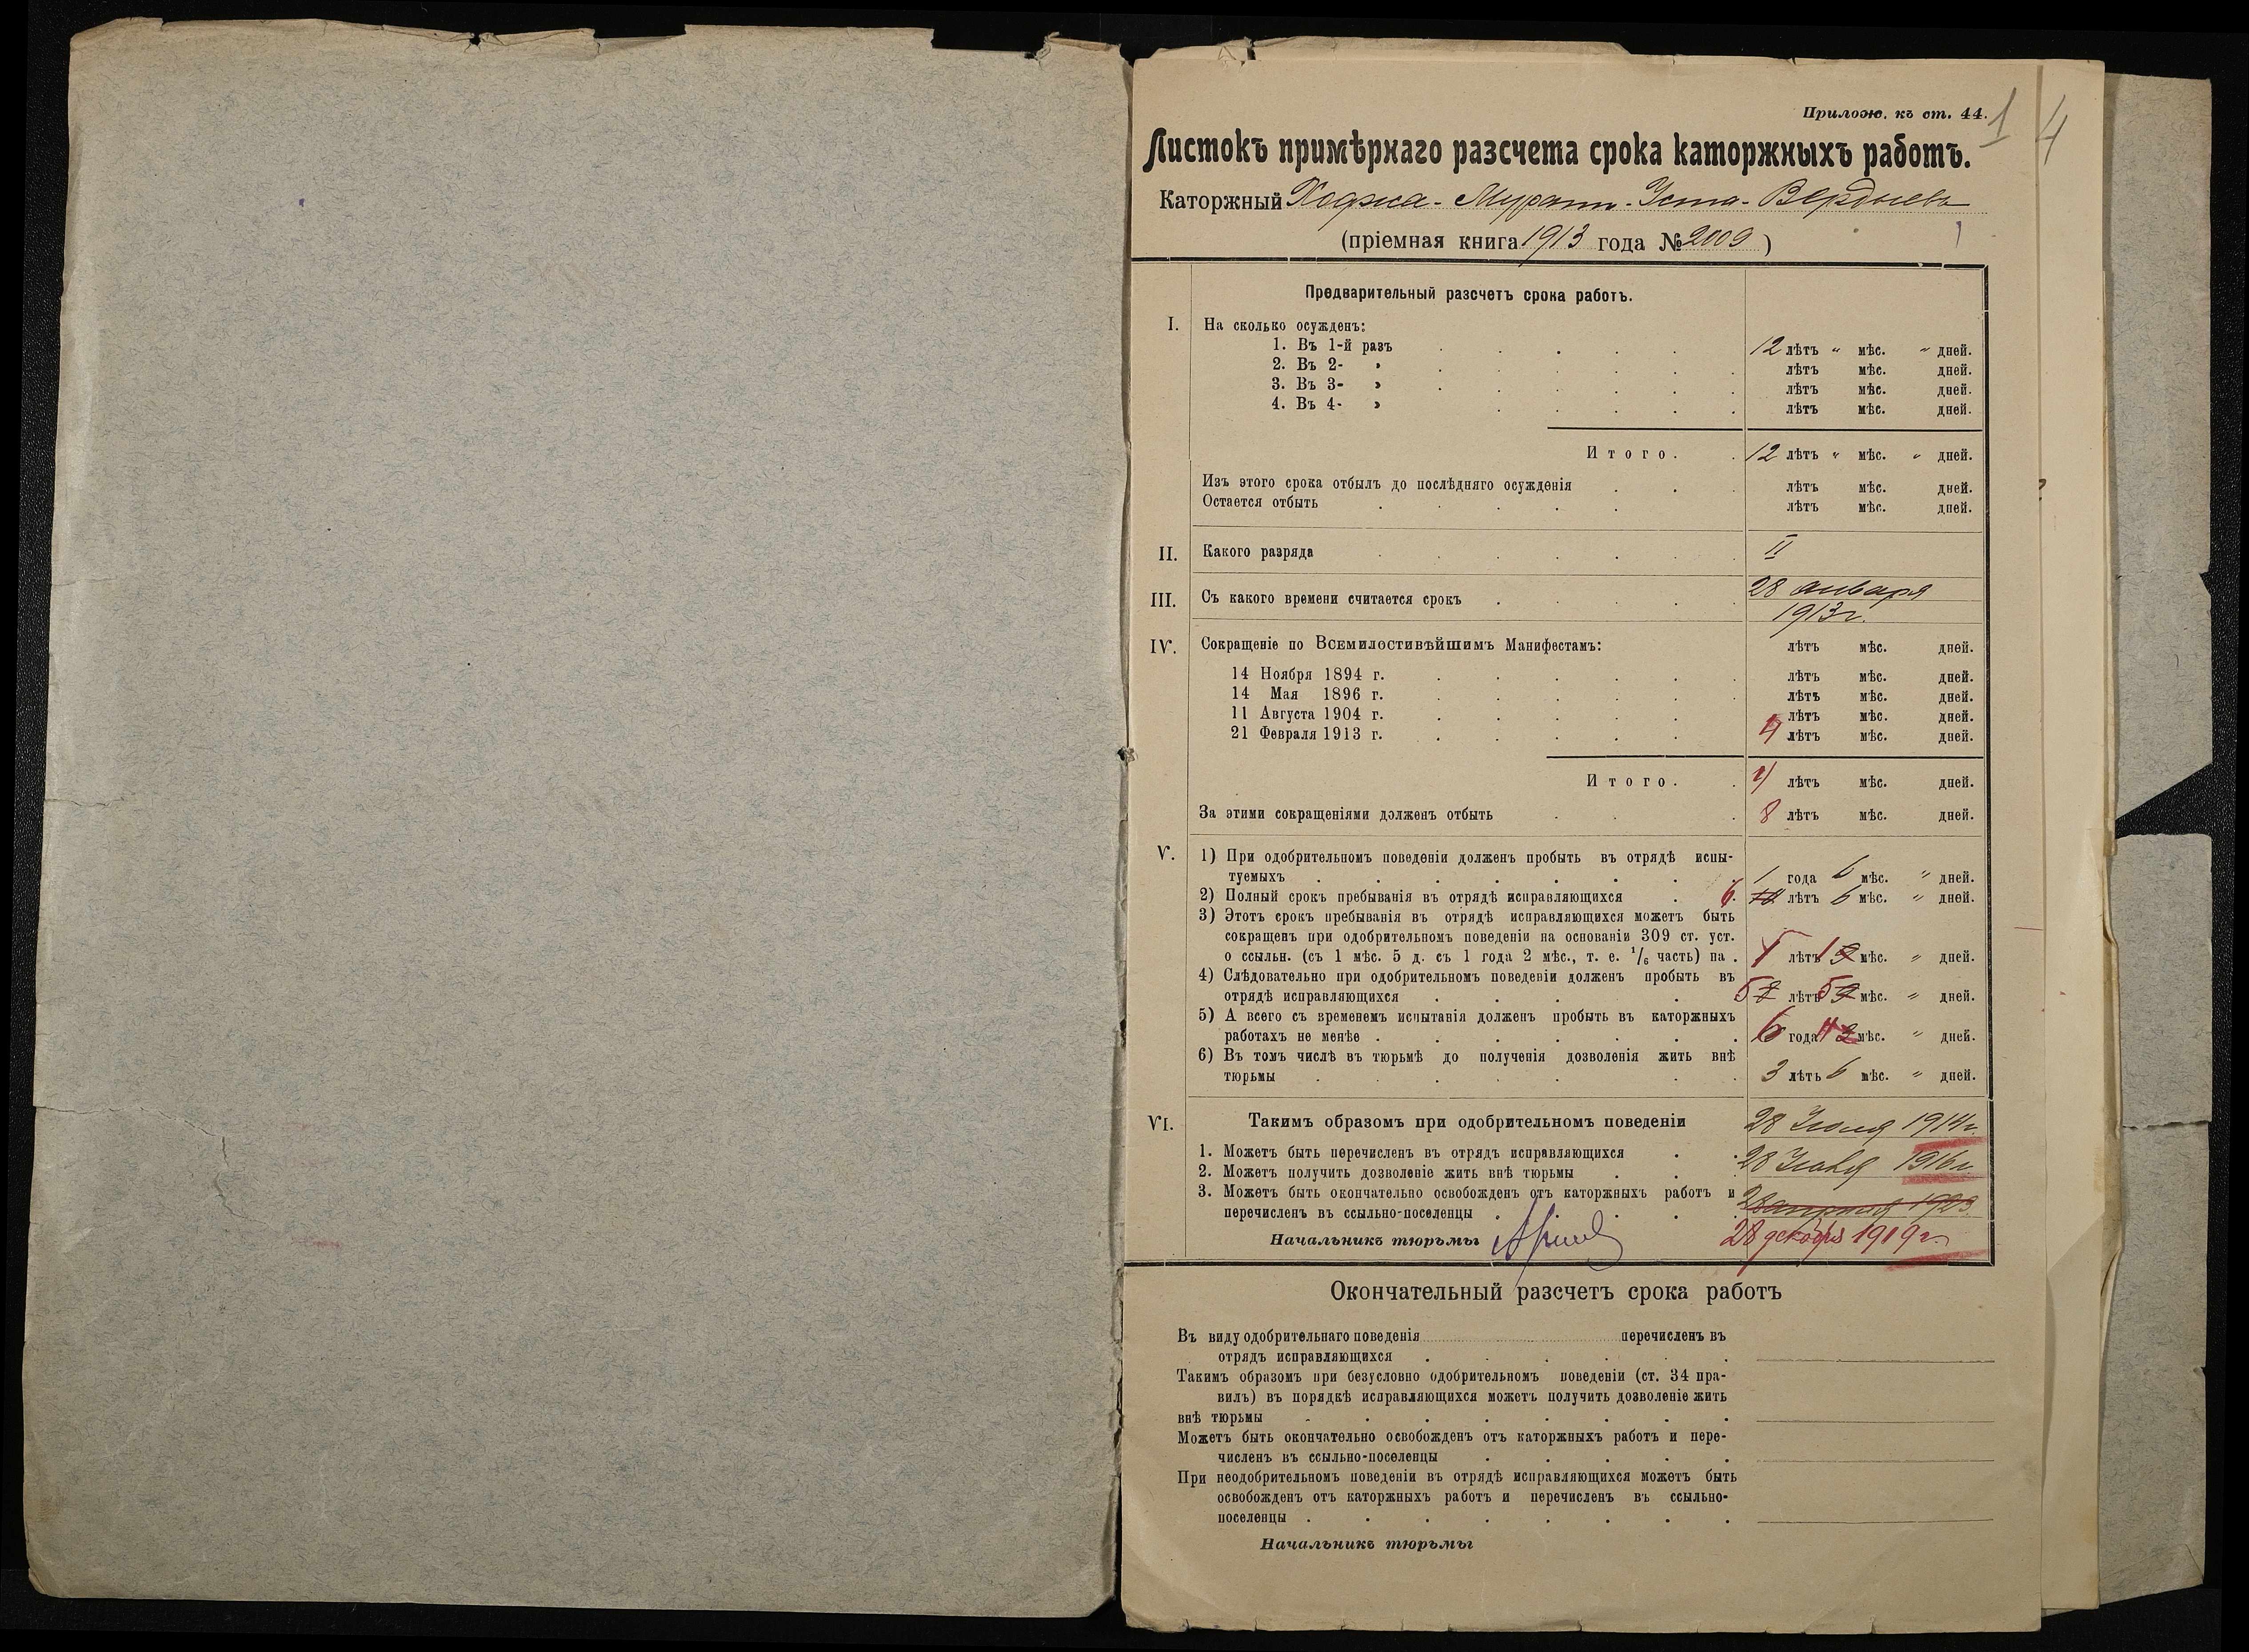 Прилож. къ ст. 44.
1 4
Листокъ примѣрнаго разсчета срока каторжныхъ работъ.
Каторжный Ходжа-Муратъ-Уста-Вердыевъ
(пріемная книга 1913 года № 2009)
Предварительный разсчетъ срока работъ.
I. На сколько осужденъ:
1. Въ 1-й разъ 12 лѣтъ " мѣс. " дней.
2. Въ 2- » лѣтъ мѣс. дней.
3. Въ 3- » лѣтъ мѣс. дней.
4. Въ 4- » лѣтъ мѣс. дней.
Итого. 12 лѣтъ " мѣс. " дней.
Изъ этого срока отбылъ до послѣдняго осужденія лѣтъ мѣс. дней.
Остается отбыть лѣтъ мѣс. дней.
II. Какого разряда II
III. Съ какого времени считается срокъ 28 января
1913 г.
IV. Сокращеніе по Всемилостивѣйшимъ Манифестамъ: лѣтъ мѣс. дней.
14 Ноября 1894 г. лѣтъ мѣс. дней.
14 Мая 1896 г. лѣтъ мѣс. дней.
11 Августа 1904 г. лѣтъ мѣс. дней.
21 Февраля 1913 г. 4 лѣтъ мѣс. дней.
Итого. 4 лѣтъ мѣс. дней.
За этими сокращеніями долженъ отбыть 8 лѣтъ мѣс. дней.
V. 1) При одобрительномъ поведеніи долженъ пробыть въ отрядѣ испы-
туемыхъ 1 года 6 мѣс. " дней.
2) Полный срокъ пребыванія въ отрядѣ исправляющихся 6. 10 лѣтъ 6 мѣс. " дней.
3) Этотъ срокъ пребыванія въ отрядѣ исправляющихся можетъ быть
сокращенъ при одобрительномъ поведеніи на основаніи 309 ст. уст.
о ссыльн. (съ 1 мѣс. 5 д. съ 1 года 2 мѣс., т. е. 1/6 часть) на 1 лѣтъ 1 9 мѣс. " дней.
4) Слѣдовательно при одобрительномъ поведеніи долженъ пробыть въ
отрядѣ исправляющихся 5 8 лѣтъ 5 9 мѣс. " дней.
5) А всего съ временемъ испытанія долженъ пробыть въ каторжныхъ
работахъ не менѣе 6 года 11 3 мѣс. " дней.
6) Въ томъ числѣ въ тюрьмѣ до полученія дозволенія жить внѣ
тюрьмы 3 лѣтъ 6 мѣс. " дней.
VI. Такимъ образомъ при одобрительномъ поведеніи 28 Іюля 1914 г.
1. Можетъ быть перечисленъ въ отрядъ исправляющихся
2. Можетъ получить дозволеніе жить внѣ тюрьмы 28 Іюля 1916 г.
3. Можетъ быть окончательно освобожденъ отъ каторжныхъ работъ и
перечисленъ въ ссыльно-поселенцы 28 апрѣля 1923
Начальникъ тюрьмы 28 декабря 1919 г.
Окончательный разсчетъ срока работъ
Въ виду одобрительнаго поведенія перечисленъ въ
отрядъ исправляющихся
Такимъ образомъ при безусловно одобрительномъ поведеніи (ст. 34 пра-
вилъ) въ порядкѣ исправляющихся можетъ получить дозволеніе жить
внѣ тюрьмы
Можетъ быть окончательно освобожденъ отъ каторжныхъ работъ и пере-
численъ въ ссыльно-поселенцы
При неодобрительномъ поведеніи въ отрядѣ исправляющихся можетъ быть
освобожденъ отъ каторжныхъ работъ и перечисленъ въ ссыльно-
поселенцы
Начальникъ тюрьмы